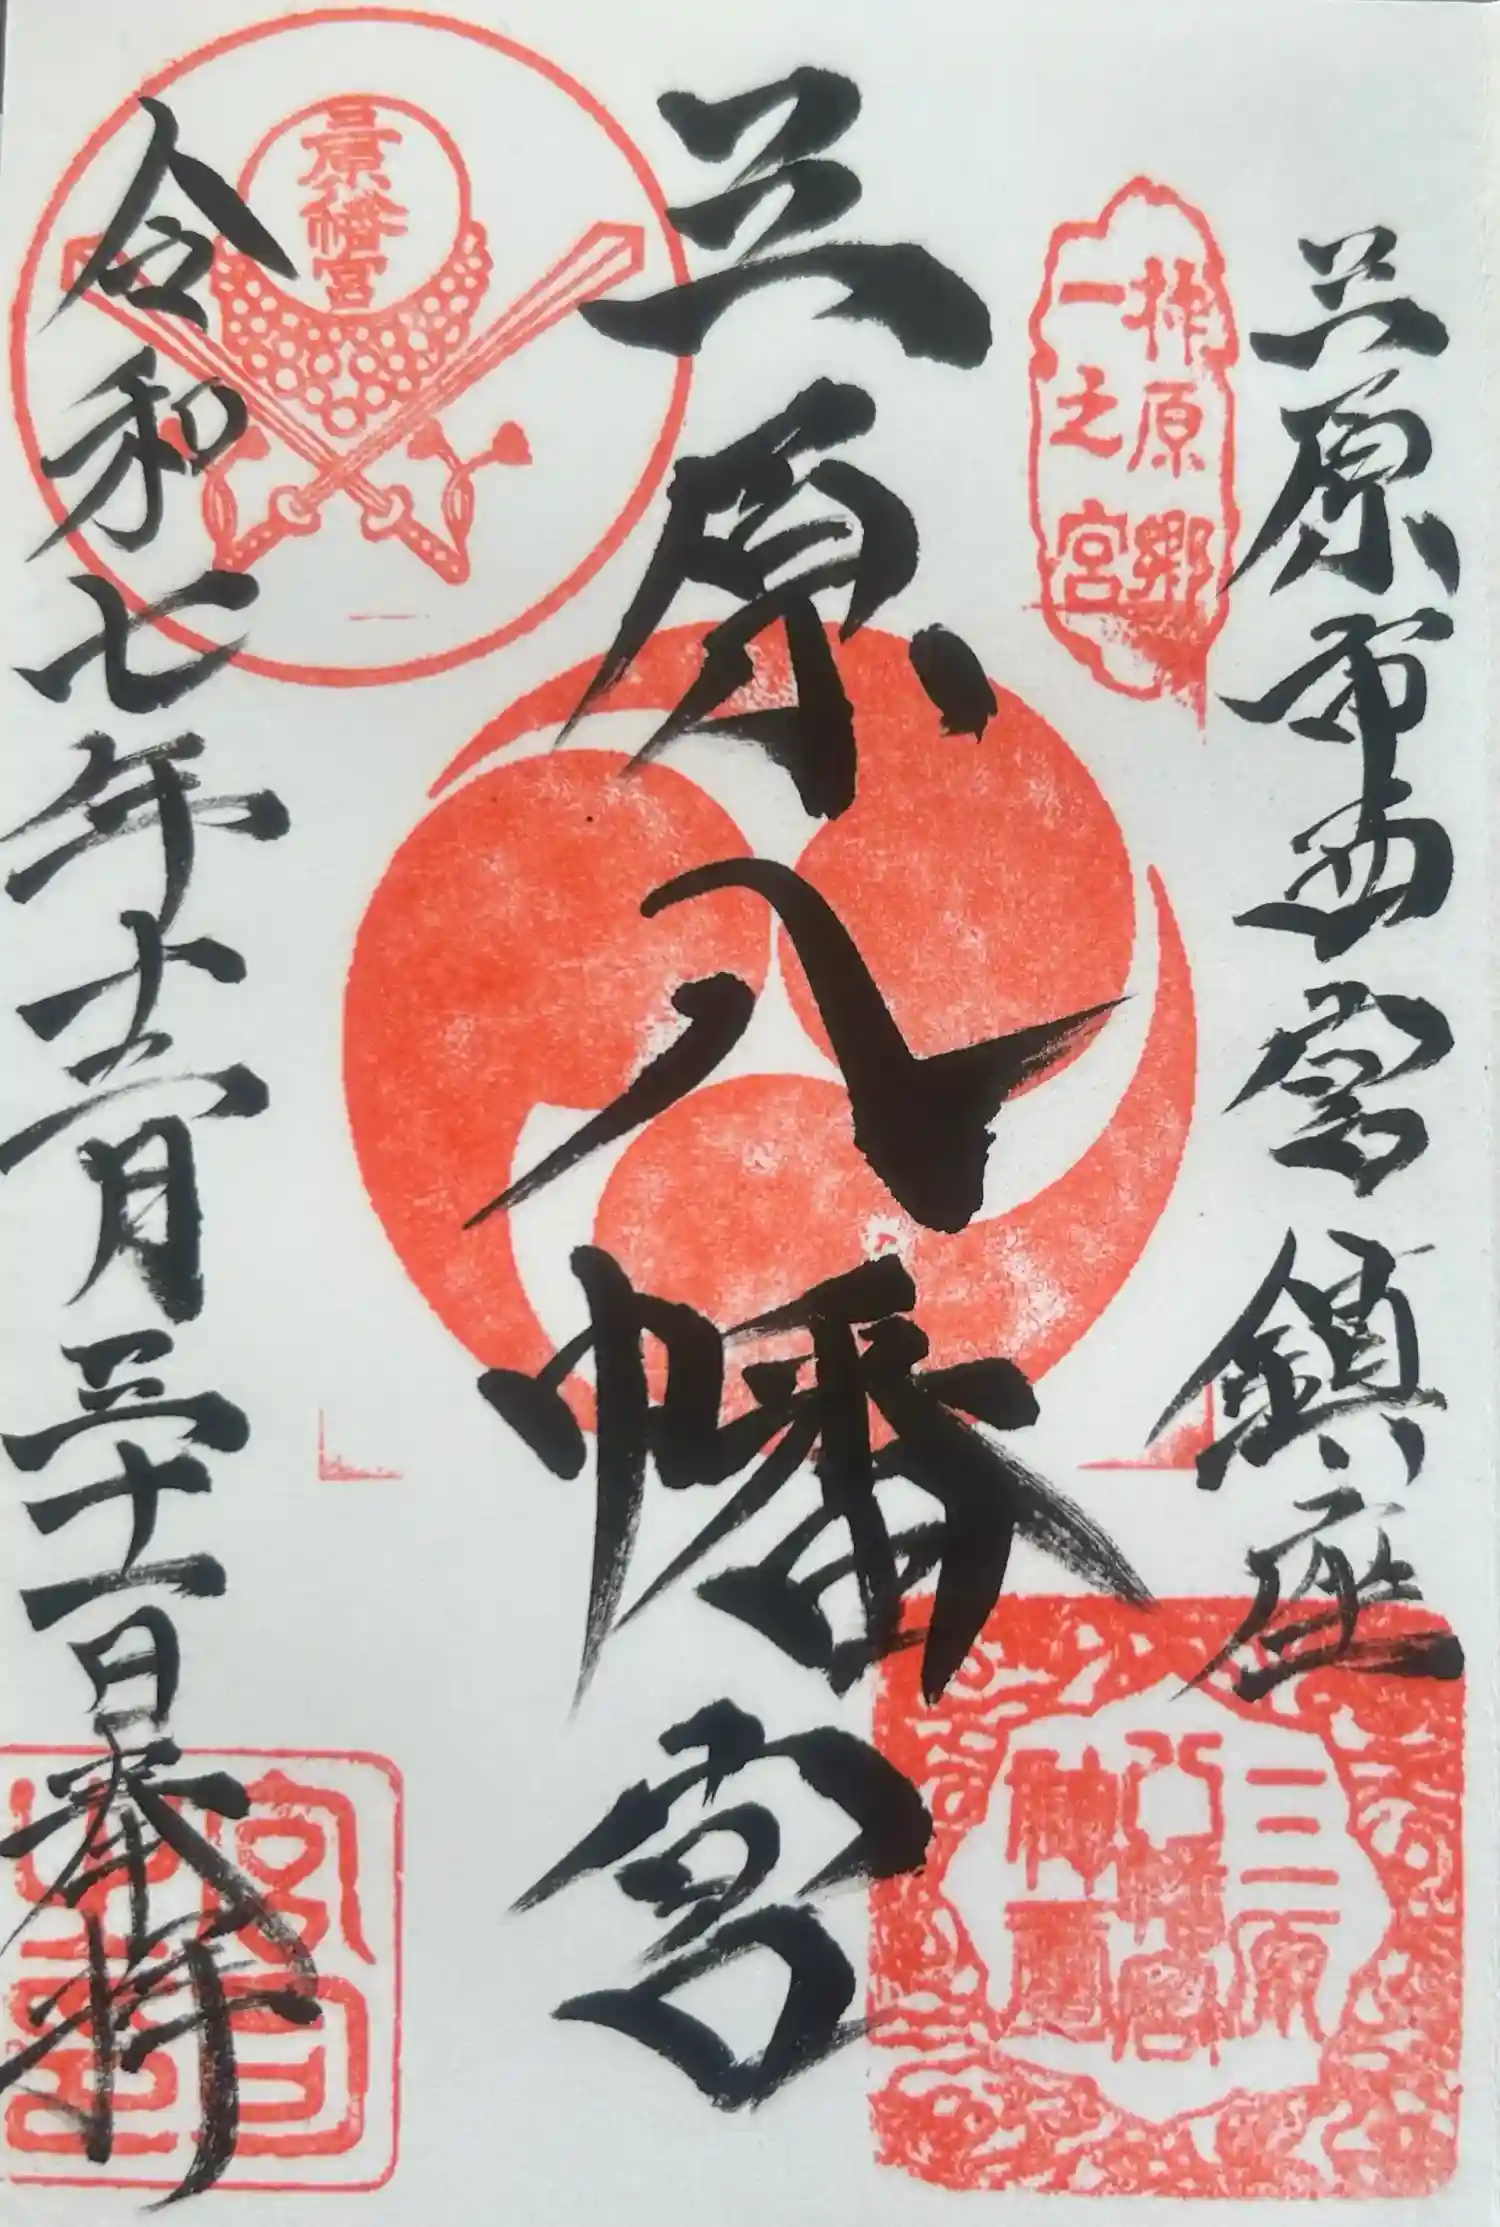 三原市西宮鎮座
柞原郷
一之宮
三原八幡宮
三原八幡宮
令和七年十二月三十一日奉拝
三原
八幡宮
宮司